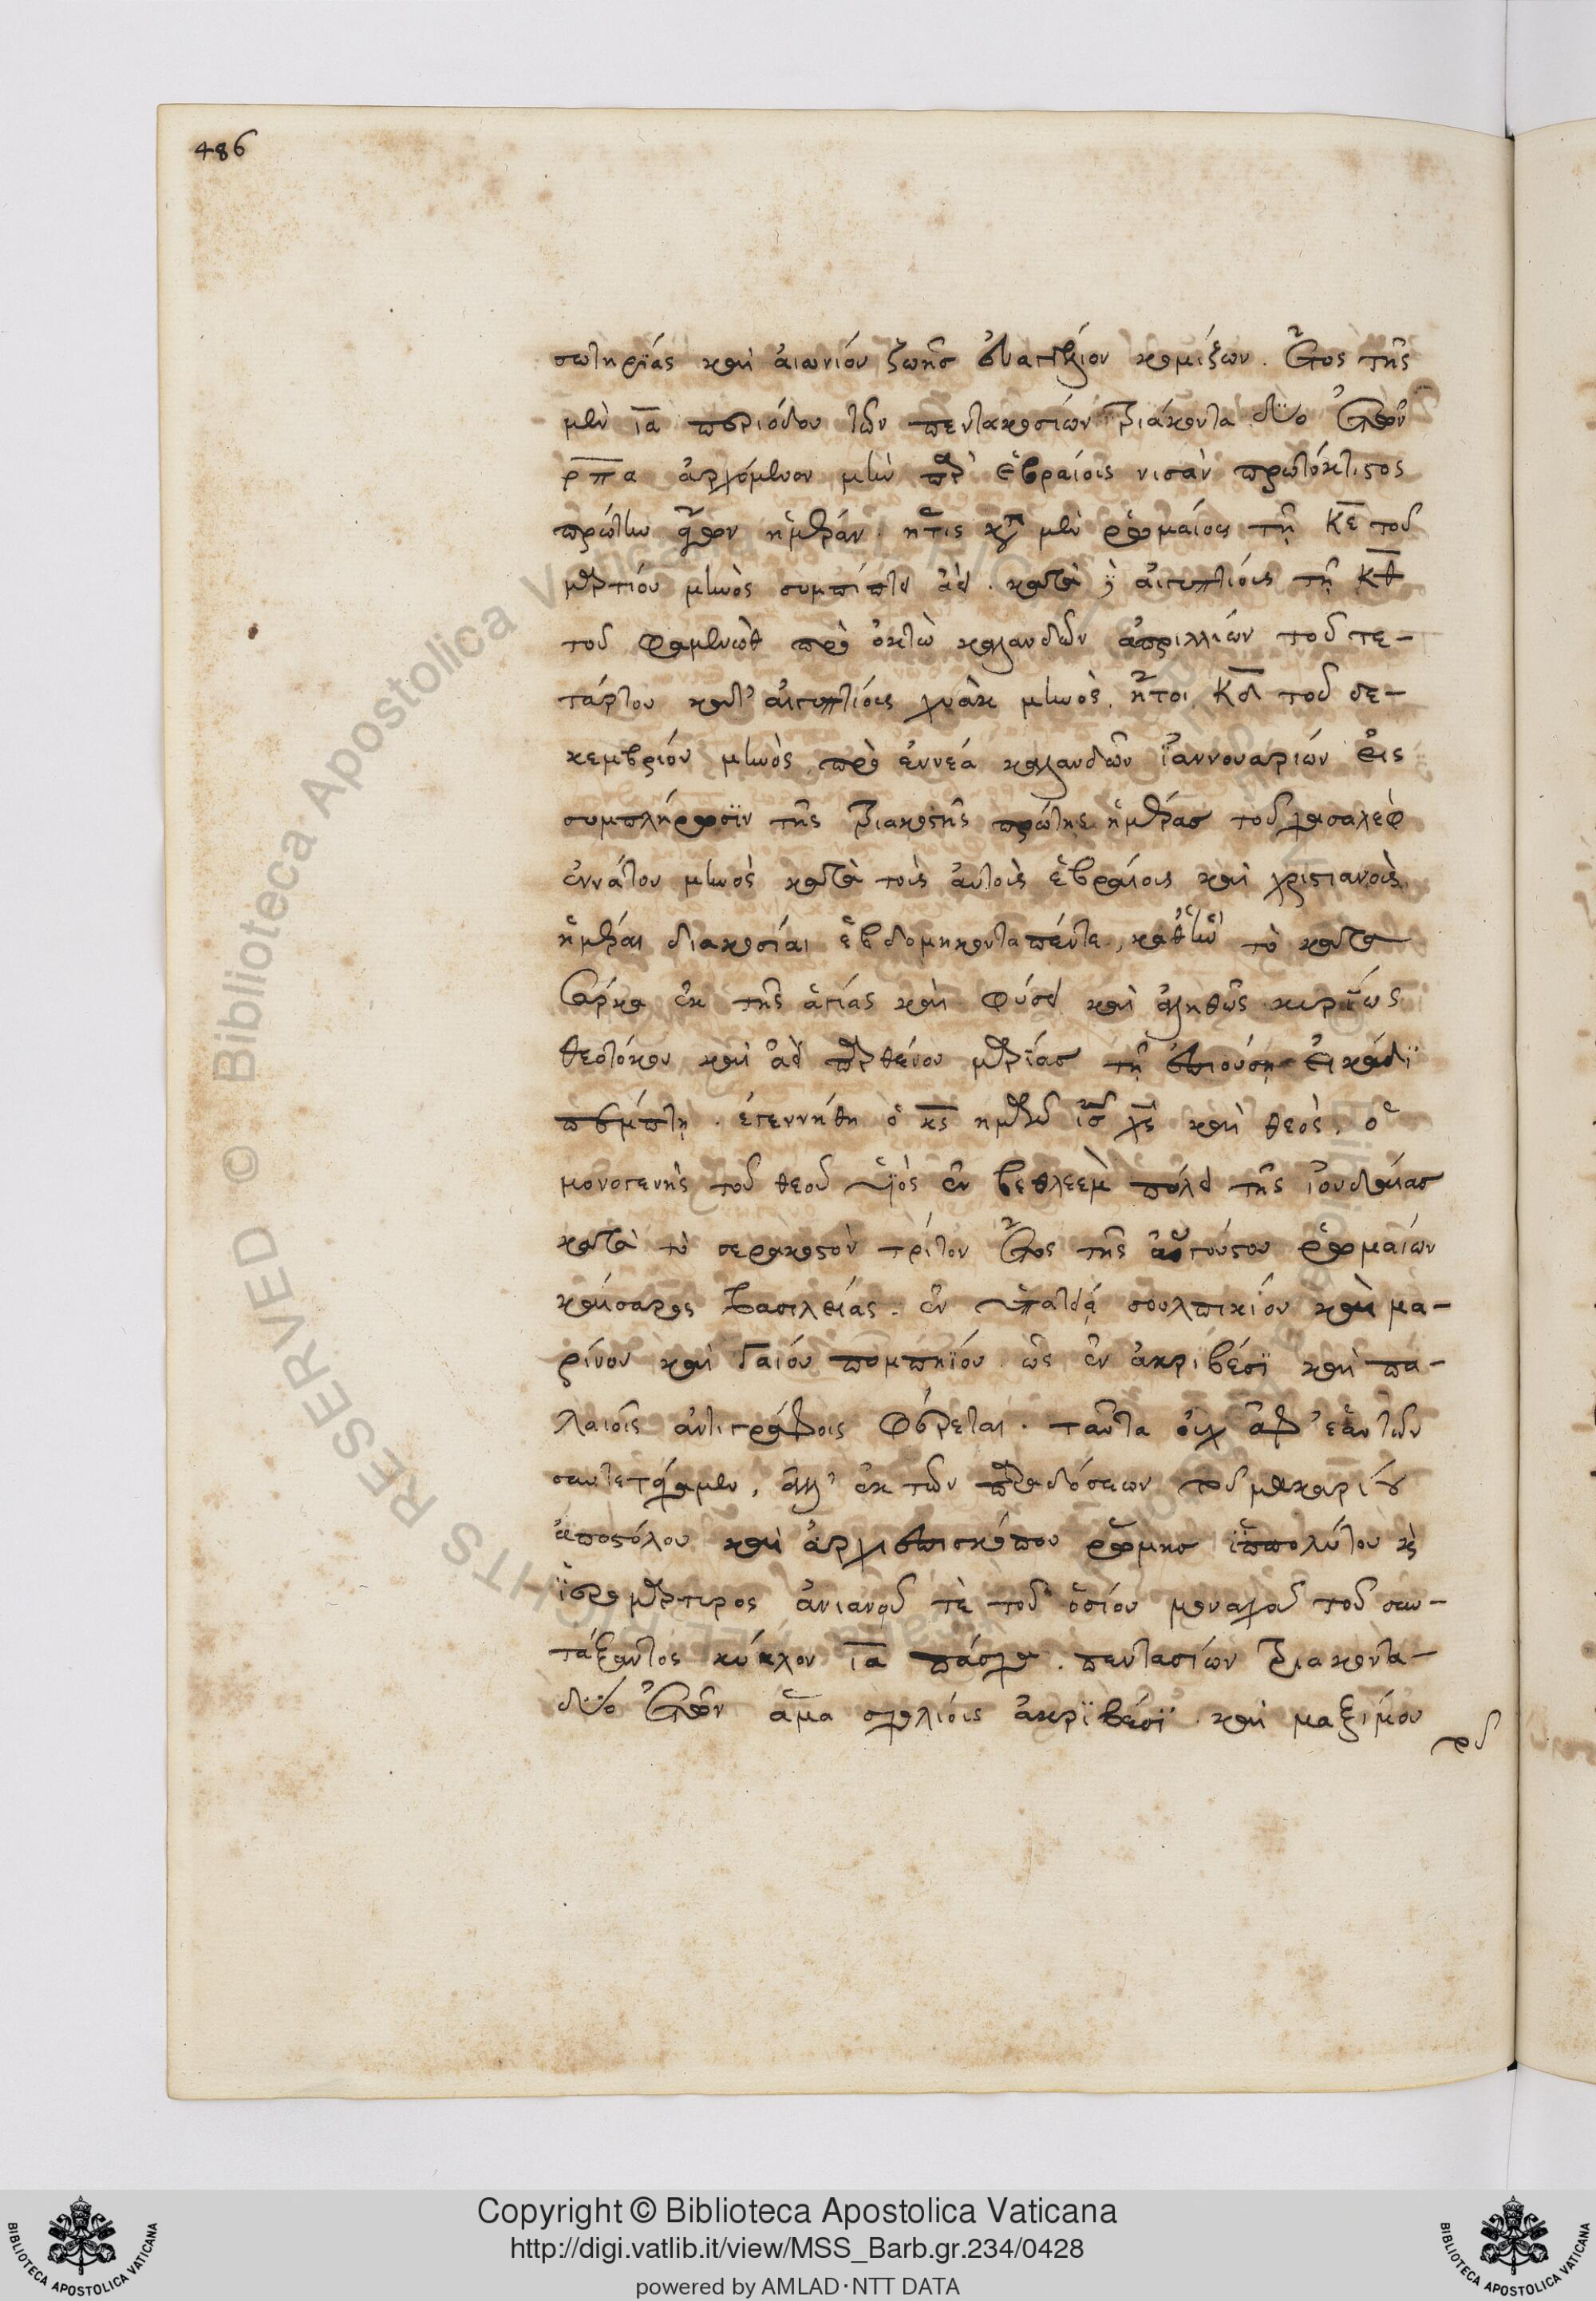 486
σωτηρίας καὶ αἰωνίου ζωῆς εὐαγγέλιον κομίζων. ἔτος τῆς
μὲν ια περιόδου τῶν πεντακοσίων τριάκοντα δύο ἐτῶν
ρπα ἀρχόμενον μὲν παρ' ἑβραίοις νισὰν πρωτόκτιστος
πρώτην φέρον ἡμέραν. ἥτις κατὰ μὲν ῥωμαίοις τῇ κε τοῦ
μαρτίου μηνὸς συμπίπτει ἀεὶ. κατὰ δὲ αἰγυπτίοις τῇ κθ
τοῦ φαμενὼθ πρὸ ὀκτὼ καλανδῶν ἀπριλλίων τοῦ τε-
τάρτου κατ' αἰγυπτίοις χυὰκ μηνὸς. ἤτοι κδ τοῦ δε-
κεμβρίου μηνὸς πρὸ ἐννέα καλανδῶν ἰαννουαρίων εἰς
συμπλήρωσιν τῆς τριακοστῆς πρώτης ἡμέρας τοῦ χασαλεφ
ἐννάτου μηνὸς κατὰ τοὶς ἀυτοὶς ἑβραίοις καὶ χριστιανοὶς
ἡμέραι διακοσίαι ἑβδομηκονταπέντε, καθ' ἣν τὸ κατὰ
σάρκα ἐκ τῆς ἁγίας καὶ φύσει καὶ ἀληθῶς κυρίως
θεοτόκου καὶ ἀεὶ παρθένου μαρίας τῇ ἐπιούσῃ εἰκάδι
πέμπτῃ. ἐγεννήθη ὁ κς ἡμῶν ις χς καὶ θεὸς. ὁ
μονογενὴς τοῦ θεοῦ υἱὸς ἐν βεθλεεμ πόλει τῆς ἰουδαίας
κατὰ τὸ τεσαρακοστὸν τρίτον ἔτος τῆς ἀυγούστου ῥωμαίων
καίσαρος βασιλείας. ἐν ὑπατείᾳ σουλπικίου καὶ μα-
ρίνου καὶ Γαίου πομπηίου. ὡς ἐν ἀκριβέσι καὶ πα-
λαιοῖς ἀντιγράφοις φέρεται. ταῦτα οὐχ ἀφ' ἑαυτῶν
συνετάξαμεν, ἀλλ' ἐκ τῶν παραδόσεων τοῦ μακαρίου
ἀποστόλου καὶ ἀρχιεπισκόπου ῥώμης ἱππολύτου καὶ
ἱερομάρτυρος ἀνιανοῦ τὲ τοῦ ὁσίου μοναχοῦ τοῦ συν-
τάξαντος κύκλον ια πάσχα. πεντασίων τριακοντα-
δύο ἐτῶν ἅμα σχολίοις ἀκριβέσι. καὶ μαξίμου
τοῦ
Copyright © Biblioteca Apostolica Vaticana
http://digi.vatlib.it/view/MSS_Barb.gr.234/0428
powered by AMLAD·NTT DATA